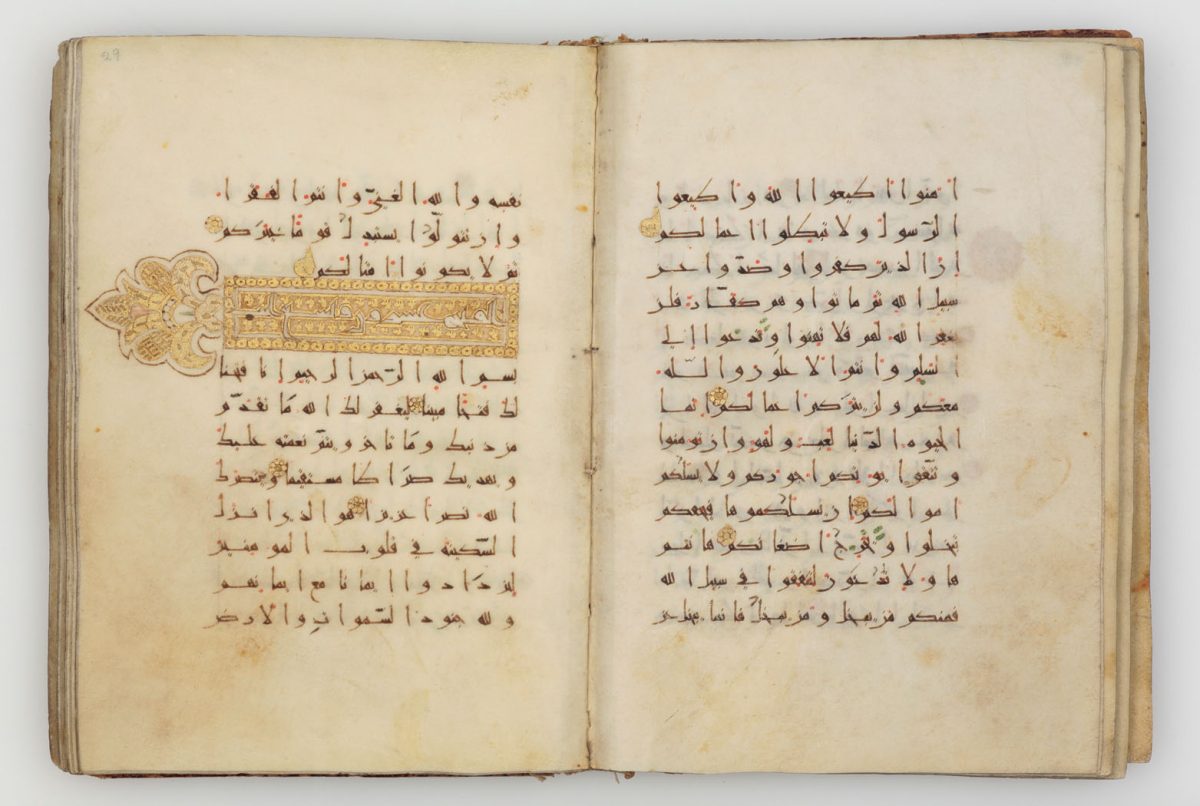 امنوا اطيعوا الله واطيعوا
الرسول ولا تبطلوا اعمالكم
ان الذين كفروا وصدوا عن
سبيل الله ثم ماتوا وهم كفار فلن
يغفر الله لهم فلا تهنوا وتدعوا الى
السلم وانتم الاعلون والله
معكم ولن يتركم اعمالكم انما
الحيوة الدنيا لعب ولهو وان تومنوا
وتتقوا يوتكم اجوركم ولا يسلكم
اموالكم ان يسلكموها فيحفكم
تبخلوا ويخرج اضغانكم هانتم
هاولا تدعون لتنفقوا في سبيل الله
فمنكم من يبخل ومن يبخل فانما يبخل عن
29
نفسه والله الغني وانتم الفقرا
وان تتولوا يستبدل قوما غيركم
ثم لا يكونوا امثالكم
بسم الله الرحمن الرحيم انا فتحنا
لك فتحا مبينا ليغفر لك الله ما تقدم
من ذنبك وما تاخر ويتم نعمته عليك
ويهديك صراطا مستقيما وينصرك
الله نصرا عزيزا هو الذي انزل
السكينة في قلوب المومنين
ليزدادوا ايمانا مع ايمانهم
ولله جنود السموات والارض